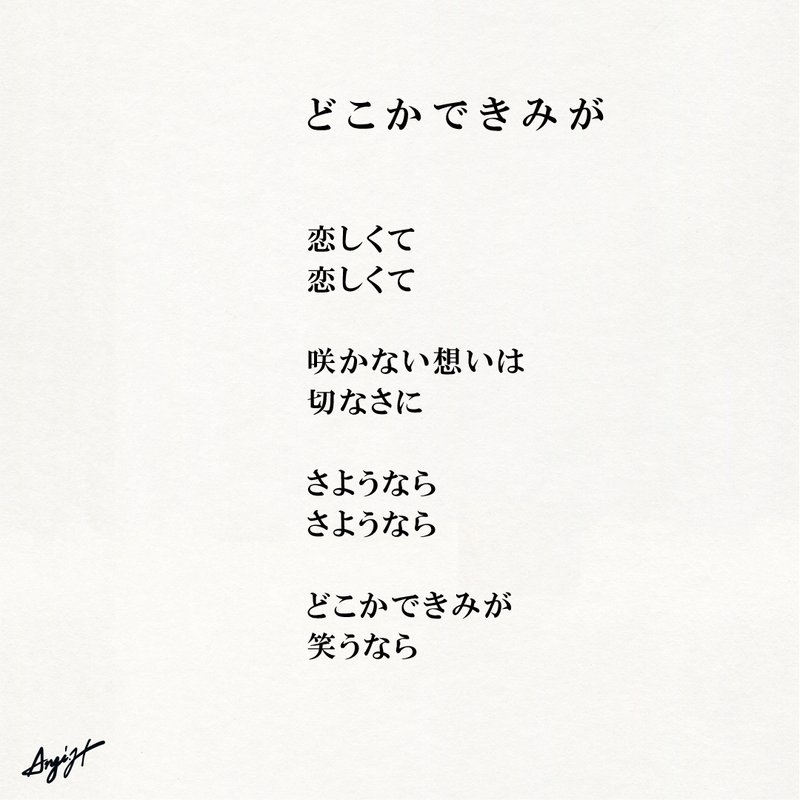 どこかできみが
恋しくて
恋しくて
咲かない想いは
切なさに
さようなら
さようなら
どこかできみが
笑うなら